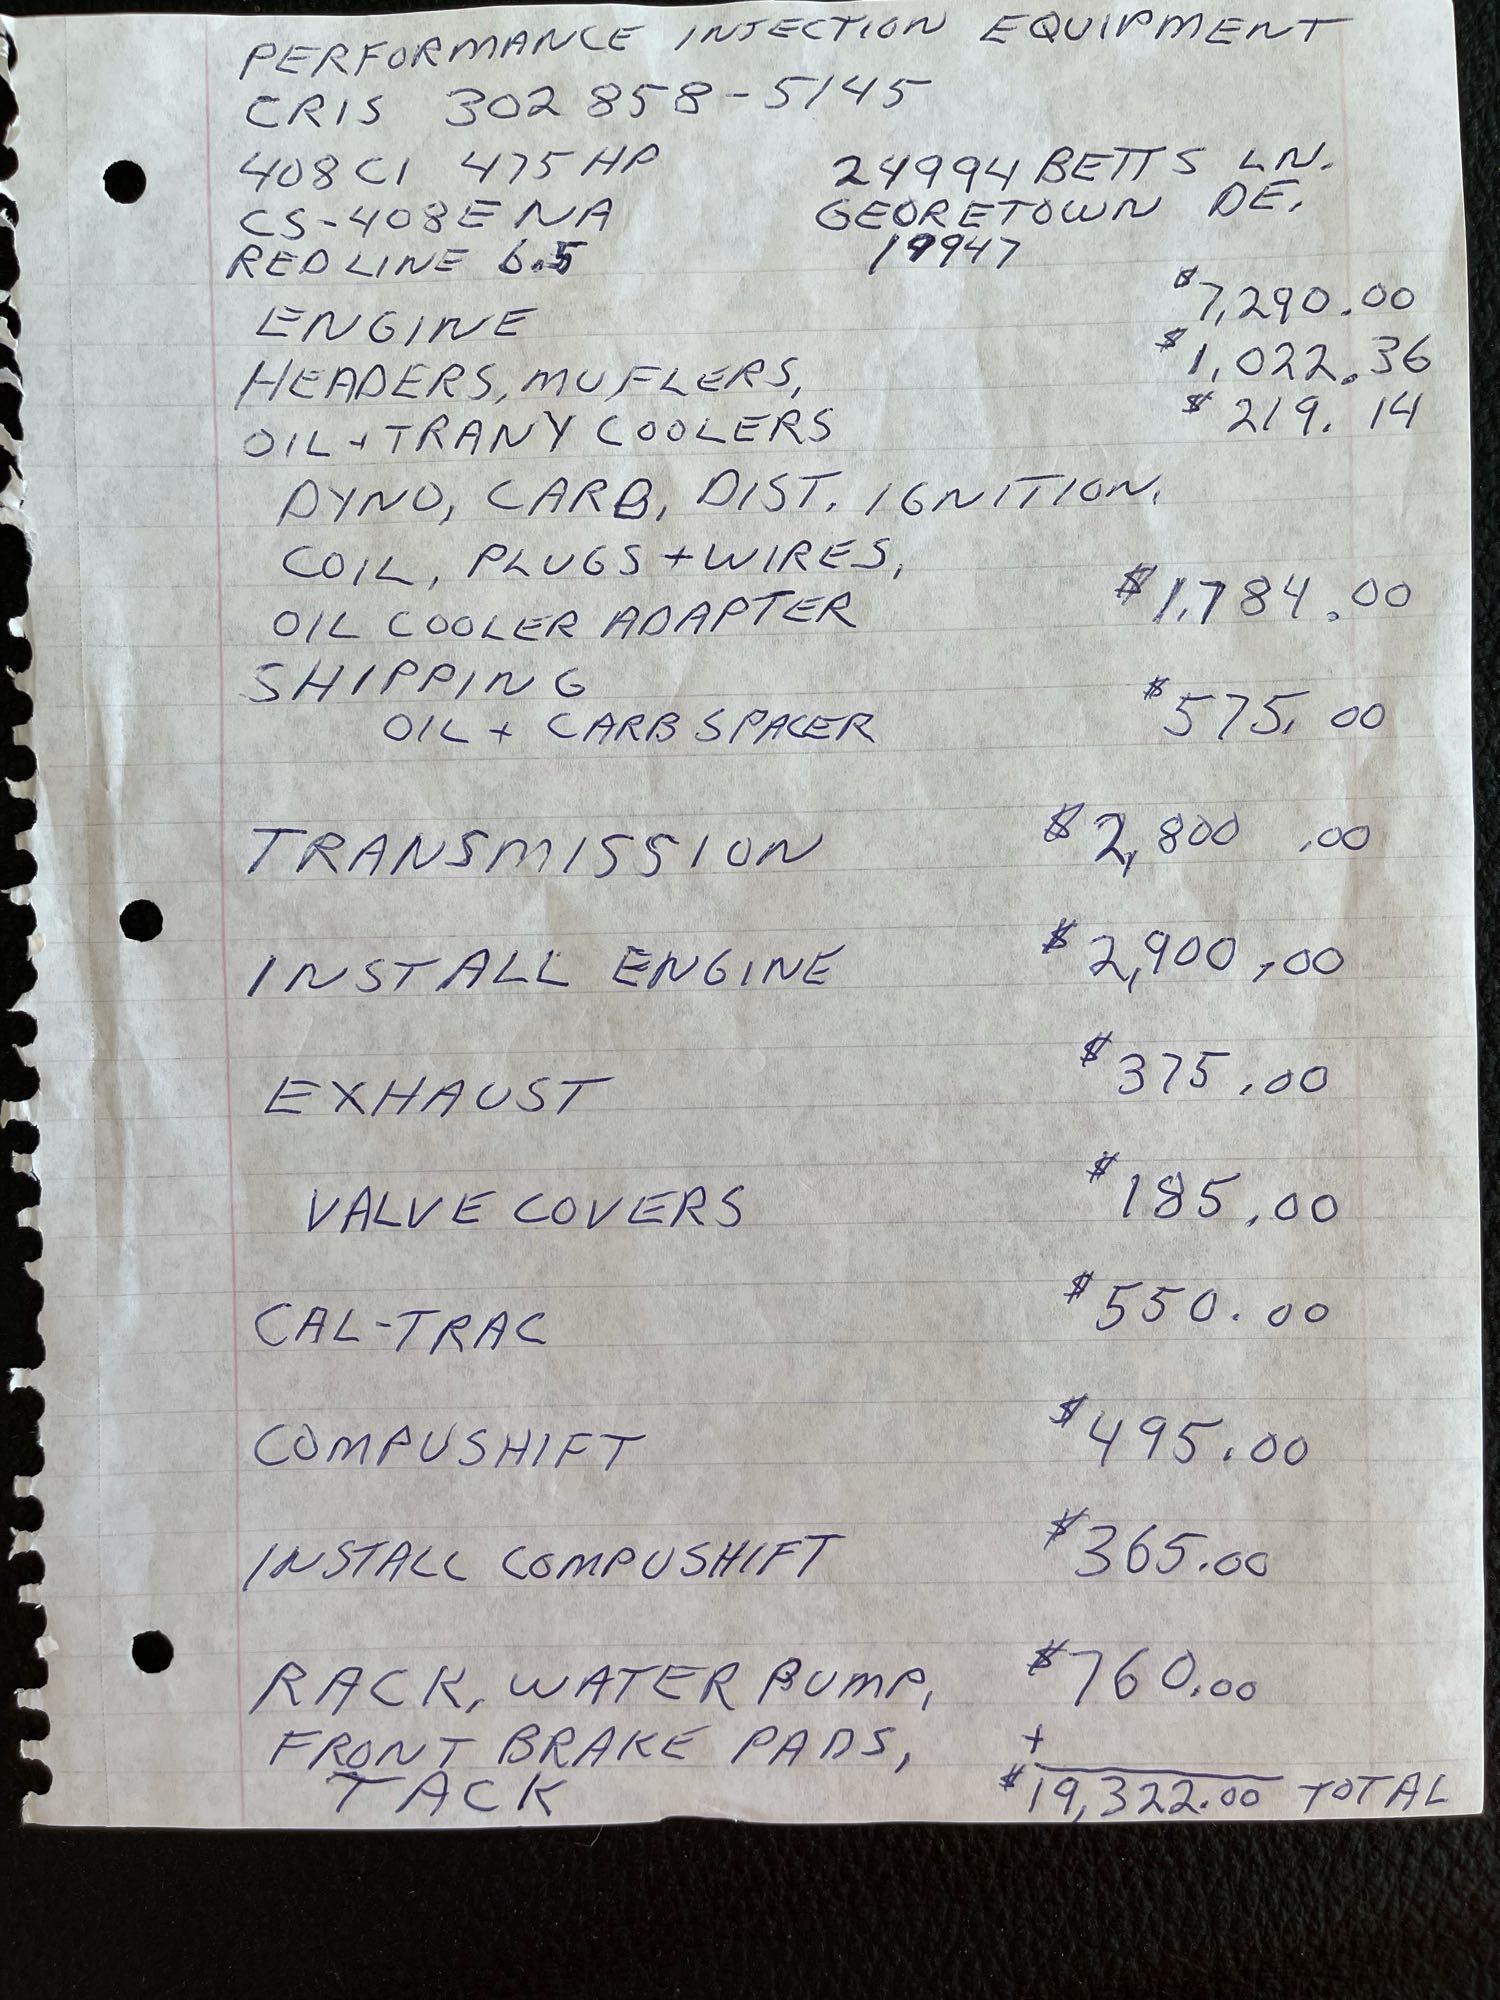 PERFORMANCE INJECTION EQUIPMENT
CRIS 302 858-5145
408 CI 475 HP
24994 BETTS LN.
CS-408E NA
GEORETOWN DE.
RED LINE 6.5
19947
ENGINE $7,290.00
HEADERS, MUFLERS, $1,022.36
OIL + TRANY COOLERS $219.14
DYNO, CARB, DIST. IGNITION.
COIL, PLUGS + WIRES,
OIL COOLER ADAPTER $1,784.00
SHIPPING
OIL + CARB SPACER $575.00
TRANSMISSION $2,800.00
INSTALL ENGINE $2,900.00
EXHAUST $375.00
VALVE COVERS $185.00
CAL-TRAC $550.00
COMPUSHIFT $495.00
INSTALL COMPUSHIFT $365.00
RACK, WATER PUMP, $760.00
FRONT BRAKE PADS, +
TACK $19,322.00 TOTAL